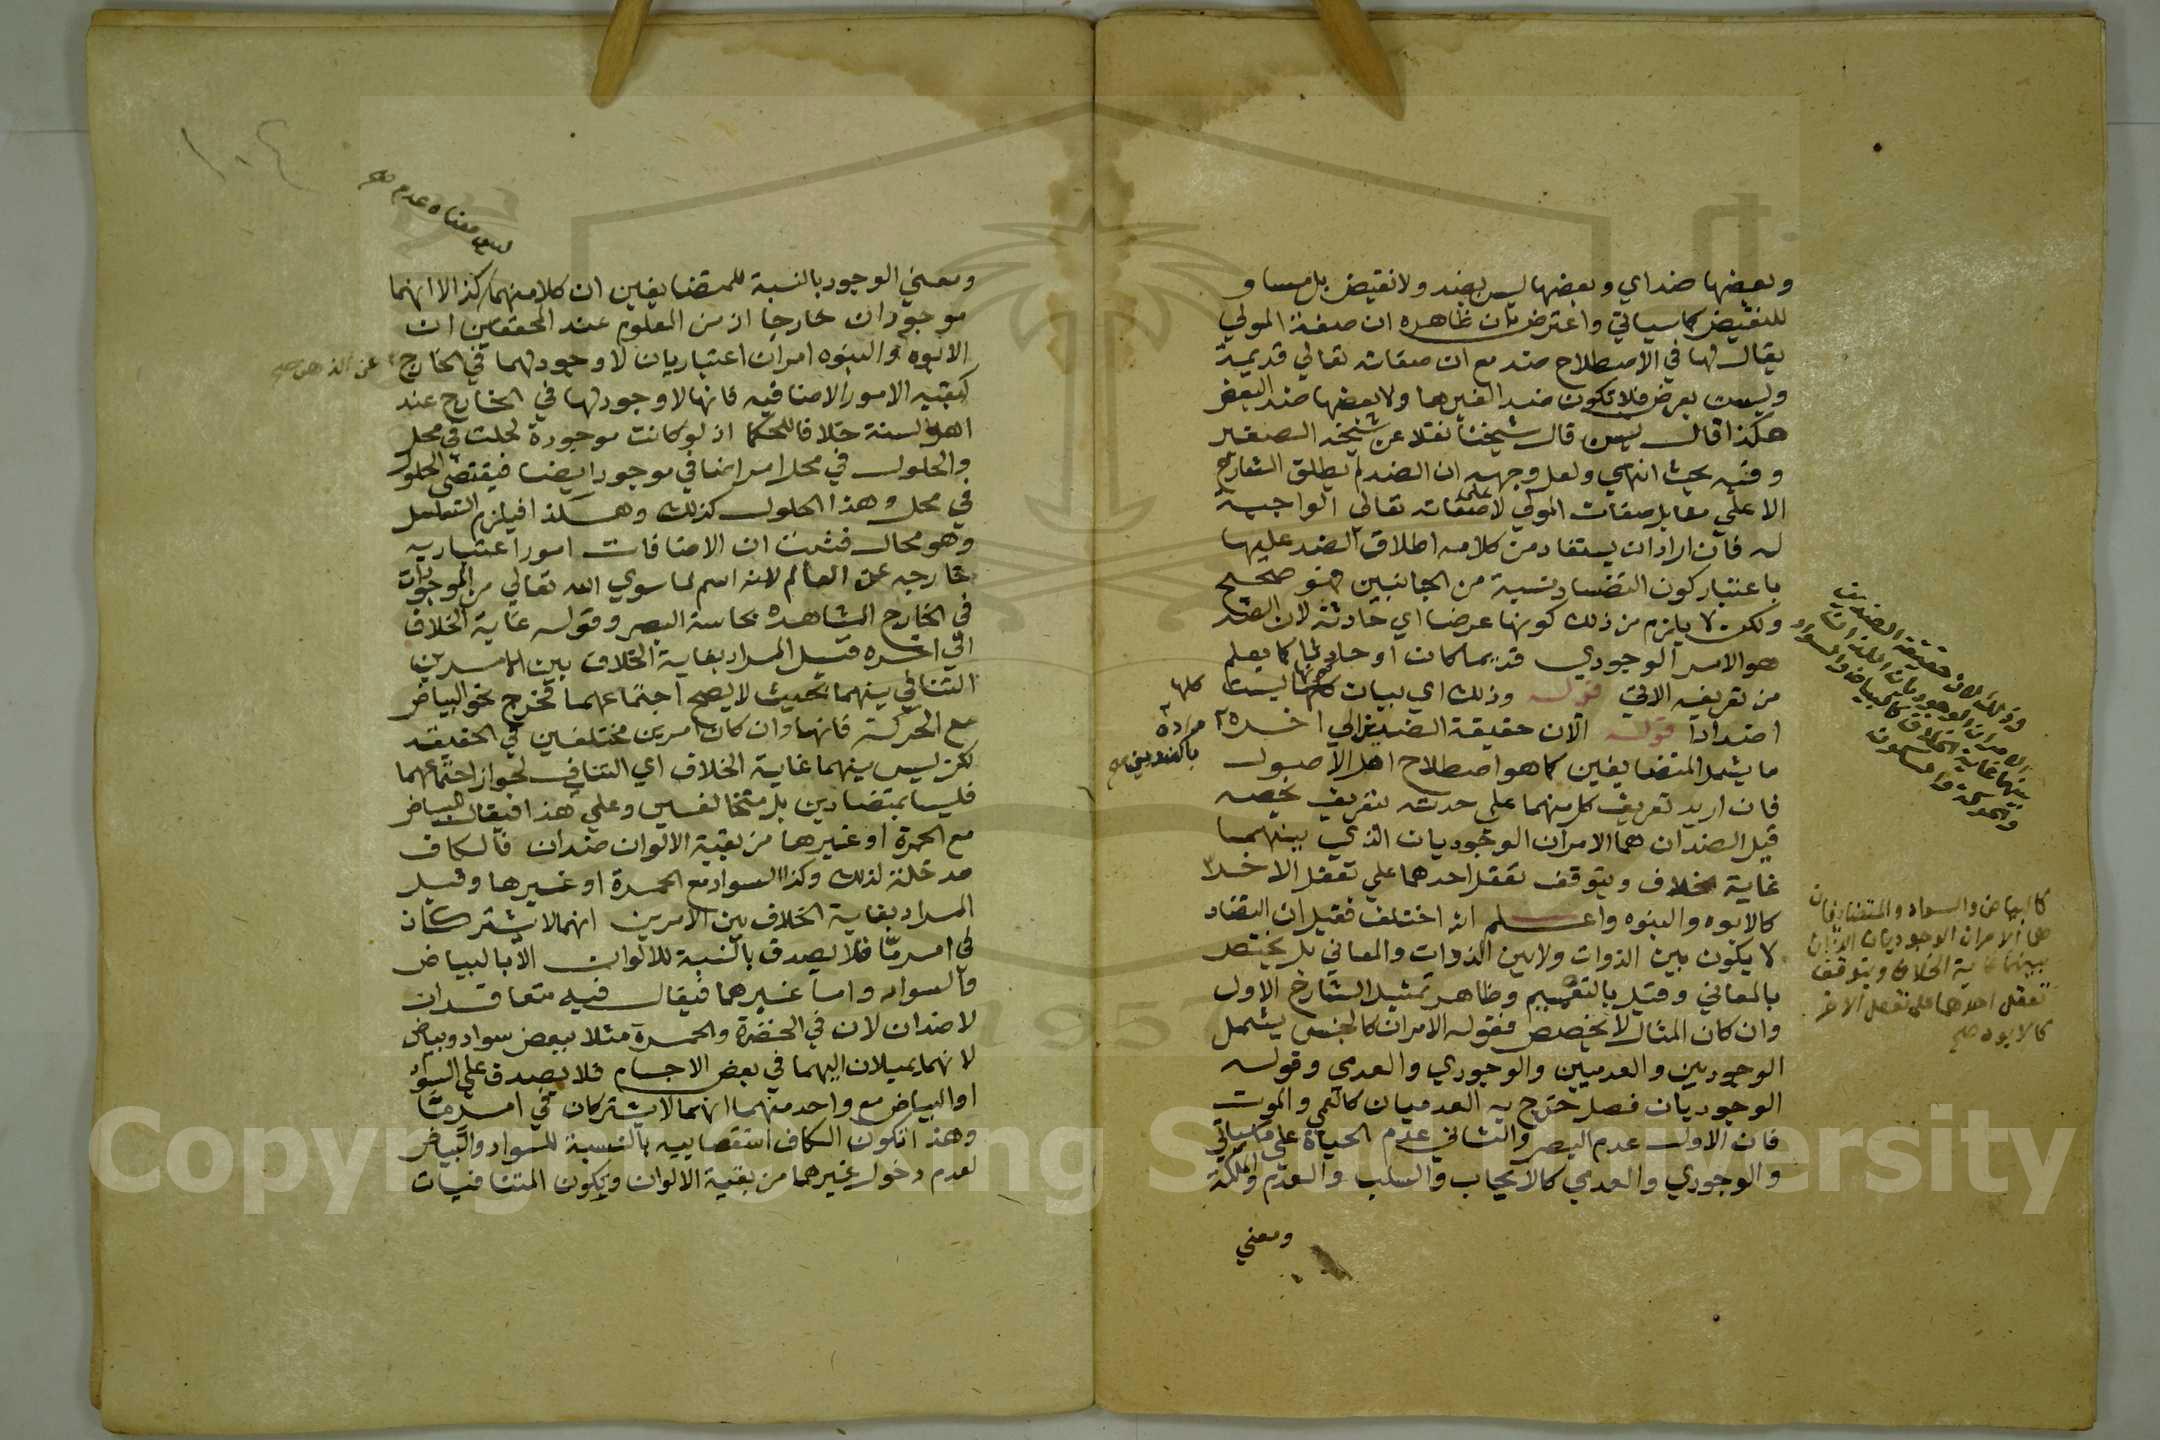 وبعضها ضداي وبعضها ليس بضد ولا نقيض بل مساو
للنقيض كما سياتي واعترض بان ظاهره ان صفة المولي
يقال لها في الاصطلاح ضد مع ان صفاته تعالي قديمة
وليست بعرض فلا تكون ضد الغيرها ولا بعضها ضد البعض
هكذا قال يس قال شيخنا نقلا عن شيخه الصغير
وفيه بحث انتهي ولعل وجهه ان الضد لم يطلق الشارح
الا علي مقابل صفات المولي لا علي صفاته تعالي الواجبة
له فان اراد ان يستفاد من كلامه اطلاق الضد عليها
باعتبار كون التضاد نسبة من الجانبين فهو صحيح
ولكن لا يلزم من ذلك كونها عرضا اي حادثة لان الضد
هو الامر الوجودي قديما كان او حادثا كما يعلم
من تعريفه الاتي قوله وذلك اي بيان كونها ليست كلها
اضدادا قوله الان حقيقة الضدين الي اخره مراده
بالضدين صح
ما يشمل المتضايفين كما هو اصطلاح اهل الاصول
فان اريد تعريف كل منهما علي حدته بتعريف يخصه
قيل الضدان هما الامران الوجوديان الذي بينهما
غاية خلاف ويتوقف تعقل احدهما علي تعقل الاخر
كالابوه والبنوه واعلم انه اختلف فقيل ان التضاد
لا يكون بين الذوات ولا بين الذوات والمعاني بل يختص
بالمعاني وقيل بالتعميم وظاهر تمثيل الشارح الاول
وان كان المثال لا يخصص فقوله الامران كالجنس يشمل
الوجوديين والعدميين والوجودي والعدمي وقوله
الوجوديان فصل خرج به العدميان كالعمي والموت
فان الاول عدم البصر والثاني عدم الحياة علي ما سياتي
والوجودي والعدمي كالايجاب والسلب والعدم والملكة
ومعني
وذلك لان حقيقة الضدين
الامران الوجوديان اللذان
بينهما غاية الخلاف كالبياض والسواد
والحركة والسكون
كالبياض والسواد والمتضايفان
هما الامران الوجوديان اللذان
بينهما غاية الخلاف ويتوقف
تعقل احدهما علي تعقل الاخر
كالابوه صح
١٠٤
ليس معناه عدم
ومعني الوجود بالنسبة للمتضايفين ان كلا منهما كذا لا انهما
موجودان خارجا اذ من المعلوم عند المحققين ان
الابوه والبنوه امران اعتباريان لا وجود لهما في الخارج عن الذهن صح
كبقيه الامور الاضافيه فانها لا وجود لها في الخارج عند
اهل السنة خلافا للحكما اذ لو كانت موجودة لحلت في محل
والحلول في محل امر اضافي موجود ايضا فيقتضي الحلول
في محل وهذا الحلول كذلك وهكذا فيلزم التسلسل
وهو محال فثبت ان الاضافات امور اعتباريه
خارجه عن العالم لانه اسم لما سوي الله تعالي من الموجودات
في الخارج المشاهده بحاسة البصر وقوله غاية الخلاف
الي اخره قيل المراد بغاية الخلاف بين الامرين
التنافي بينهما بحيث لا يصح اجتماعهما فخرج نحو البياض
مع الحركة فانهما وان كان امرين مختلفين في الحقيقه
لكن ليس بينهما غاية الخلاف اي التنافي لجواز اجتماعهما
فليسا بمتضادين بل متخالفين وعلي هذا فيقال البياض
مع الحمرة او غيرها من بقية الالوان ضدان فالكاف
مدخلة لذلك وكذا السواد مع الحمرة او غيرها وقيل
المراد بغاية الخلاف بين الامرين انهما لا يشتركان
في امر مّا فلا يصدق بالنسبة للالوان الا بالبياض
والسواد واما غيرهما فيقال فيه متعاقدان
لا ضدان لان في الخضرة والحمرة مثلا بعض سواد وبياض
لانهما يميلان اليهما في بعض الاجسام فلا يصدق علي السواد
او البياض مع واحد منهما انهما لا يشتركان في امر مّا
وهذا تكون الكاف استقصاييه بالنسبة للسواد والبياض
لعدم دخول غيرهما من بقية الالوان ويكون المتنافيات
Copyright © King Saud University
1957